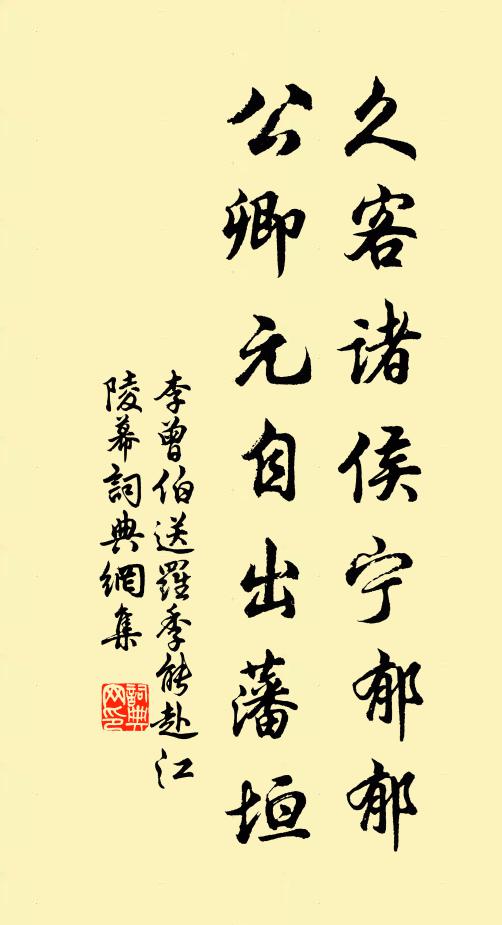 久客诸侯宁郁郁
公卿元自出藩垣
李曾伯送羅季能赴江
陵幕詞典網集
詞典
网印